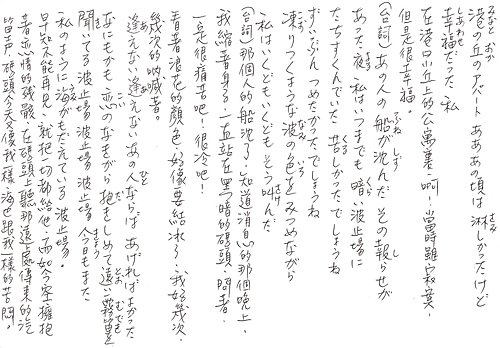 港の丘のアパート あああの頃は 淋しかったけど
幸福だった 私
在港口小丘上的公寓裏啊!當時雖寂寞,
但是很幸福.
(台詞) あの人の船が沈んだ その報らせが
あった夜 私はいつまでも 暗い波止場に
たちすくんでいた 苦しかったでしょうね
ずいぶん つめたかったでしょうね
凍りつくような波の色をみつめながら
私はいくどもいくども そう叫んだ
(台詞)那個人的船沈了,知道消息的那個晚上,
我縮著身子一直站在黑暗的碼頭,阿著,
一定是很痛苦吧!很冷吧!
看著浪花的顏色,好像要結冰了,我好幾次,
幾次的吶喊著.
逢えない逢えない あの人ならば あげればよかった
なにもかも 恋のなきがら抱きしめて遠い霧笛を
聞いてる 波止場 波止場 今日もまた
私のように 海がもだえている 波止場.
早知不能再見,就把一切都給他,而如今空擁抱
著恋情的殘骸,在碼頭上聽那遠處傳來的汽
笛声,碼頭今天又像我一樣,海也跟我一樣的苦悶.